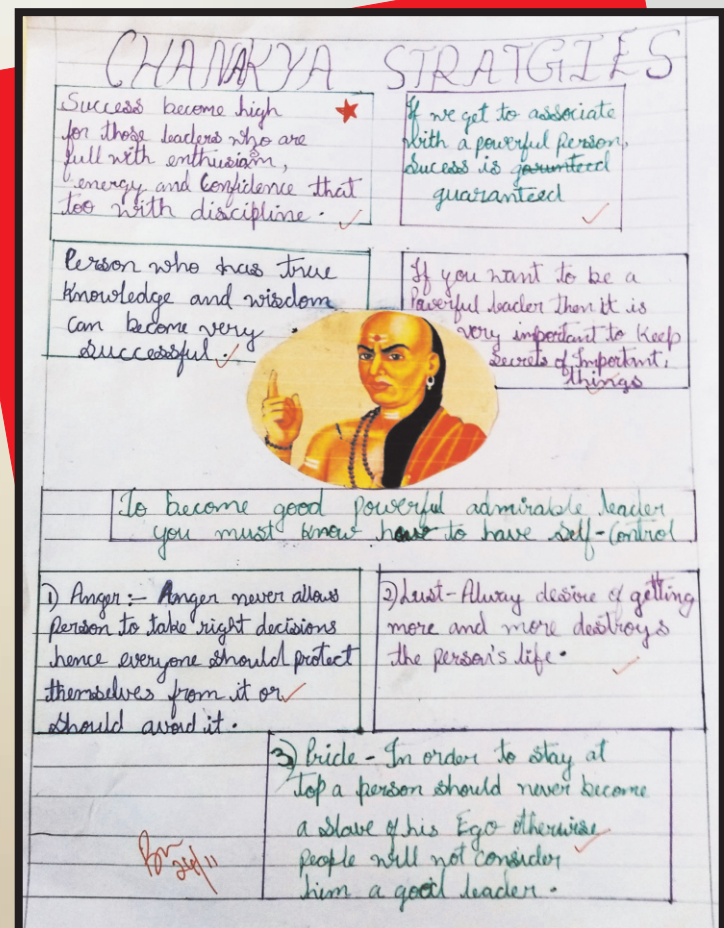 CHANAKYA STRATGIES
Success become high
for those leaders who are
full with enthusiasm,
energy and Confidence that
too with discipline.
If we get to associate
with a powerful person,
Sucess is garunteed
guaranteed
Person who has true
knowledge and wisdom
can become very
successful.
If you want to be a
Powerful leader then it is
very important to Keep
Secrets of Important.
things
To become good powerful admirable leader
you must know how to have Self-Control
1) Anger :- Anger never allows
person to take right decisions
hence everyone should protect
themselves from it or
should avoid it.
2) Lust - Alway desire of getting
more and more destroys
the person's life.
3) Pride - In order to stay at
top a person should never become
a slave of his Ego otherwise
people will not consider
him a good leader.
24/11